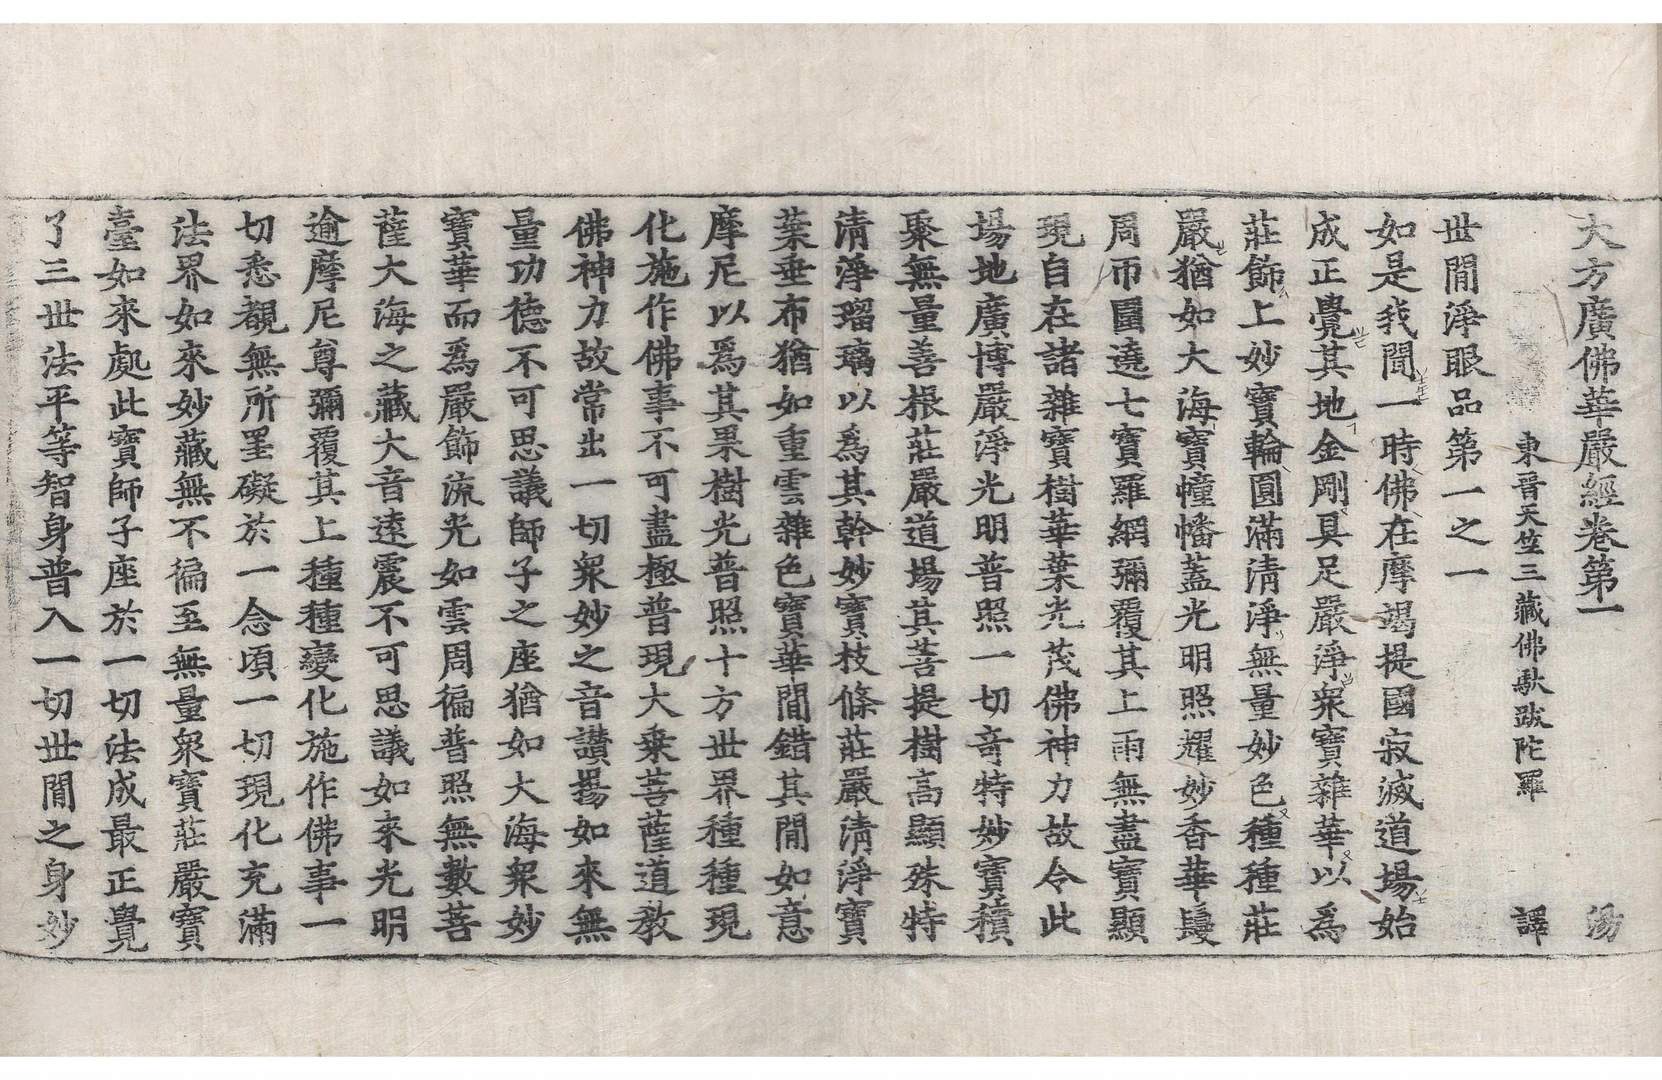 大方廣佛華嚴經卷第一 湯
東晉天竺三藏佛馱跋陀羅 譯
世間淨眼品第一之一
如是我聞一時佛在摩竭提國寂滅道場始
成正覺其地金剛具足嚴淨衆寶雜華以為
莊飾上妙寶輪圓滿清淨無量妙色種種莊
嚴猶如大海寶幢幡蓋光明照耀妙香華鬘
周帀圍遶七寶羅網彌覆其上雨無盡寶顯
現自在諸雜寶樹華葉光茂佛神力故令此
場地廣博嚴淨光明普照一切竒特妙寶積
聚無量善根莊嚴道場其菩提樹高顯殊特
清淨瑠璃以為其幹妙寶枝條莊嚴清淨寶
葉垂布猶如重雲雜色寶華間錯其間如意
摩尼以為其果樹光普照十方世界種種現
化施作佛事不可盡極普現大乗菩薩道教
佛神力故常出一切衆妙之音讃揚如來無
量功德不可思議師子之座猶如大海衆妙
寶華而為嚴飾流光如雲周徧普照無數菩
薩大海之藏大音遠震不可思議如來光明
逾摩尼尊彌覆其上種種變化施作佛事一
切悉覩無所罣礙於一念頃一切現化充滿
法界如來妙藏無不徧至無量衆寶莊嚴寶
臺如來處此寶師子座於一切法成最正覺
了三世法平等智身普入一切世間之身妙